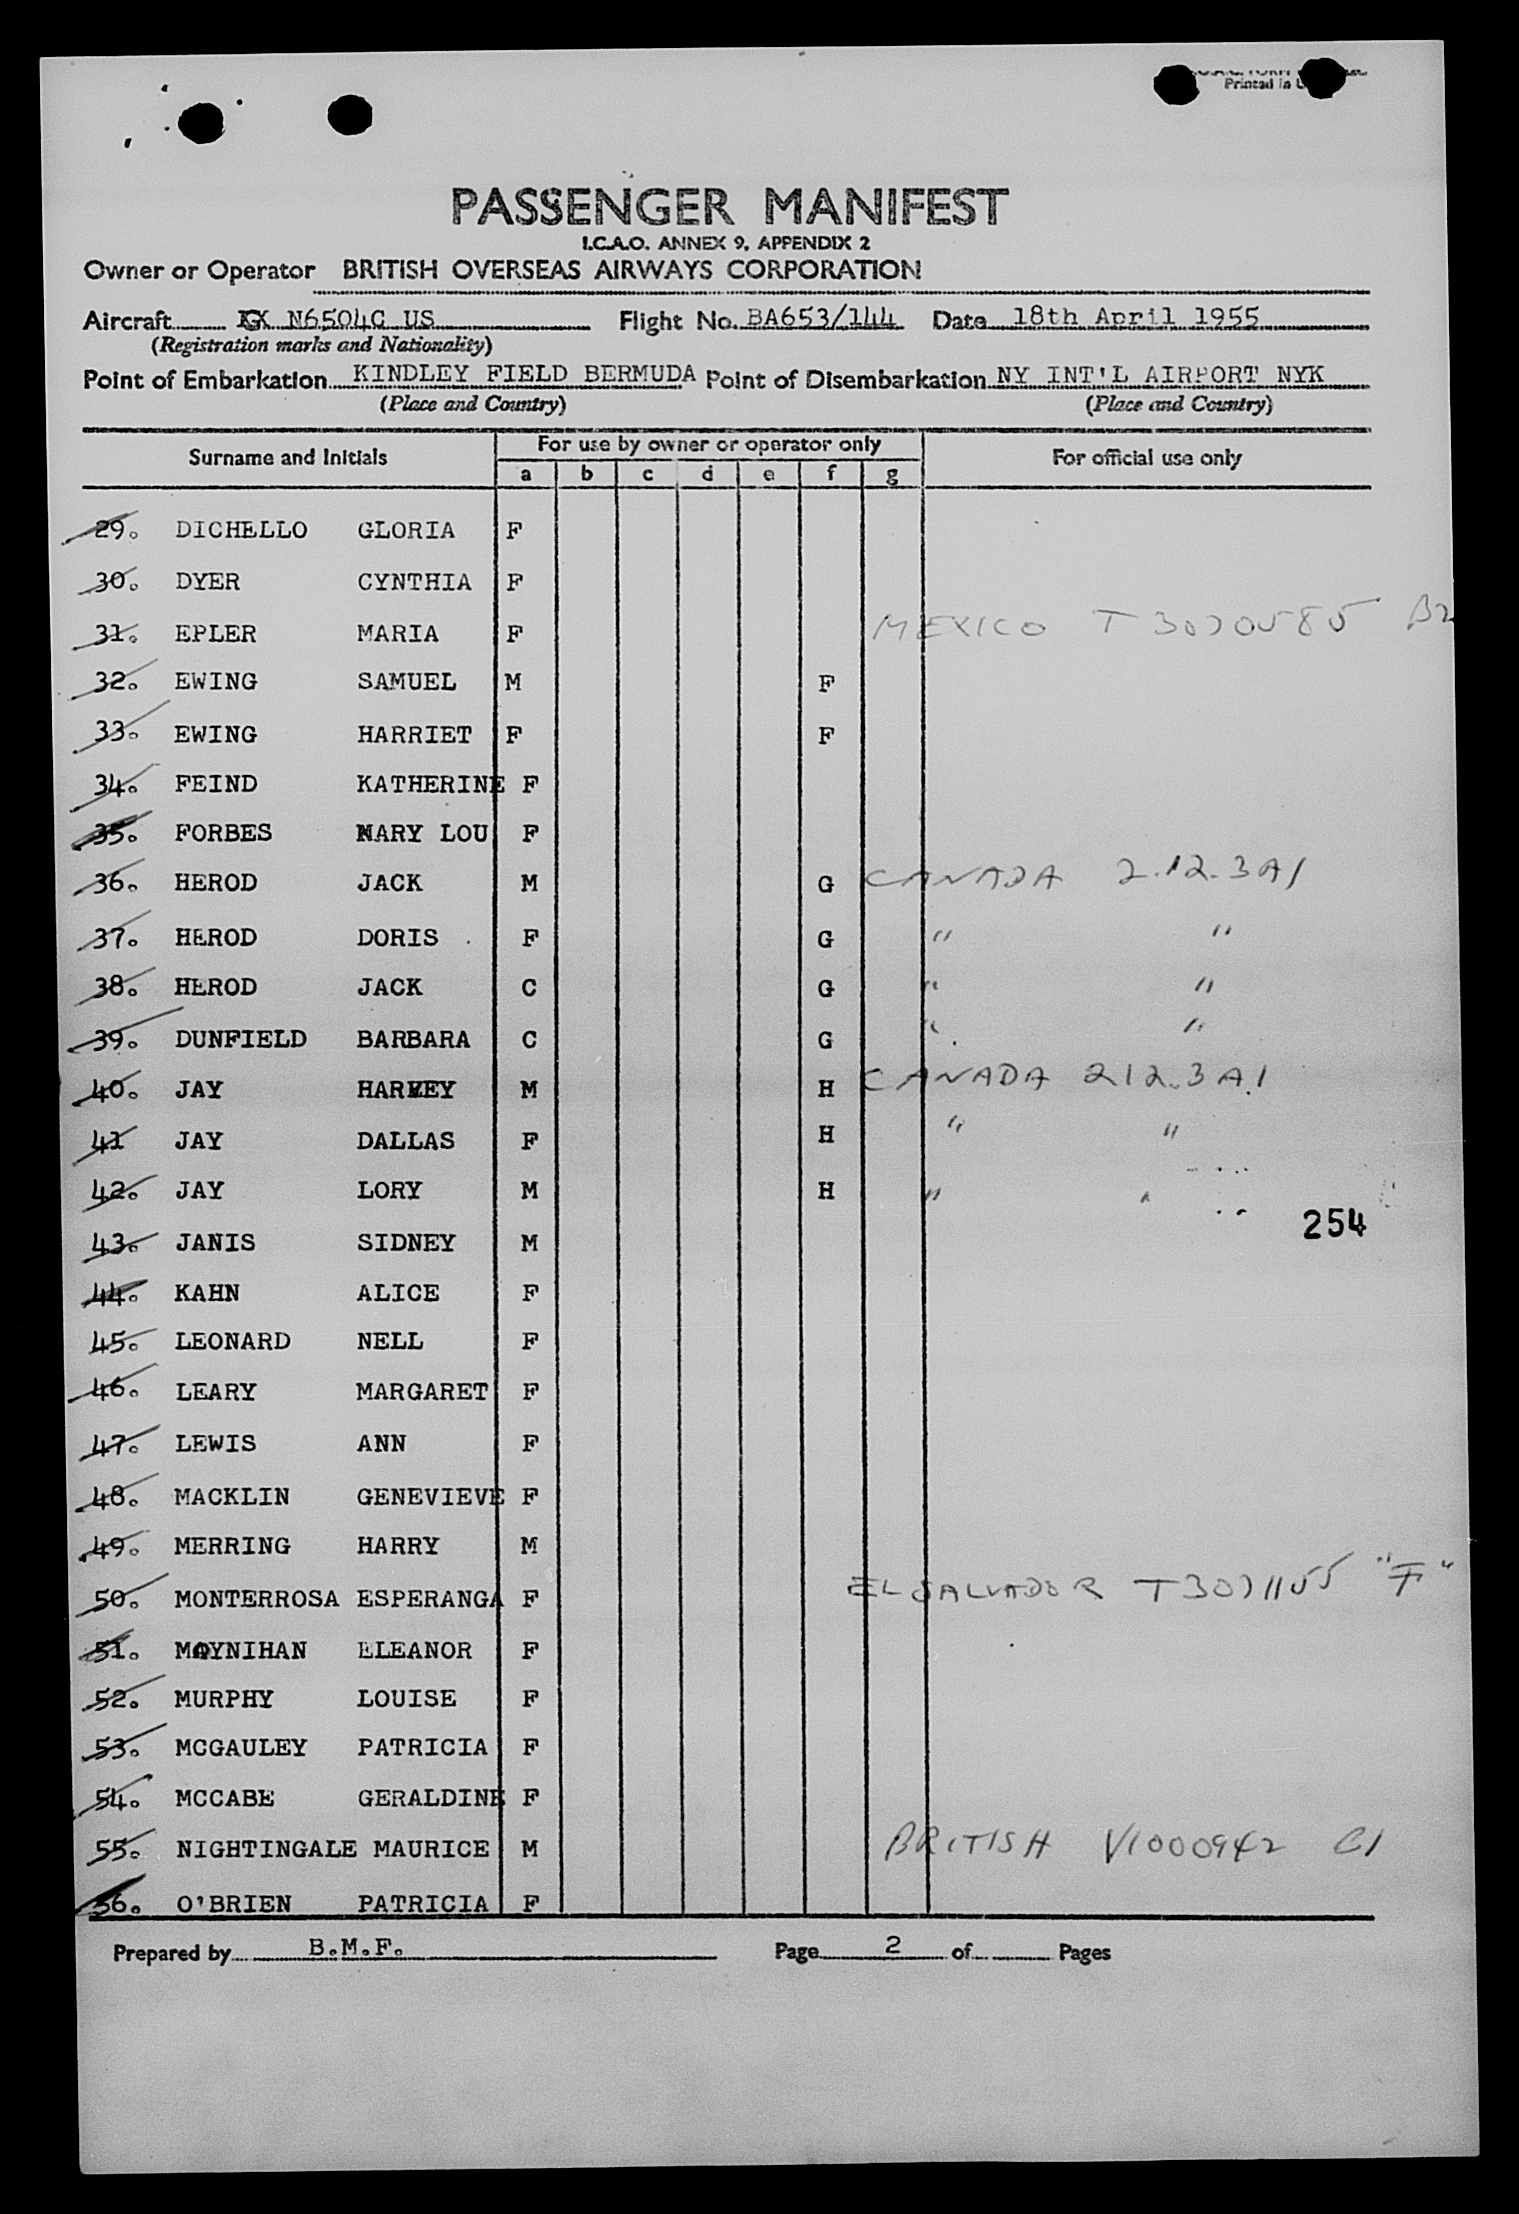 Printed in
PASSENGER MANIFEST
I.C.A.O. ANNEX 9, APPENDIX 2
Owner or Operator BRITISH OVERSEAS AIRWAYS CORPORATION
Aircraft N6504C US Flight No. BA653/144 Date 18th April 1955
(Registration marks and Nationality)
Point of Embarkation KINDLEY FIELD BERMUDA Point of Disembarkation NY INT'L AIRPORT NYK
(Place and Country) (Place and Country)
Surname and Initials For use by owner or operator only For official use only
a b c d e f g
29. DICHELLO GLORIA F
30. DYER CYNTHIA F
31. EPLER MARIA F MEXICO T3070585 B2
32. EWING SAMUEL M F
33. EWING HARRIET F F
34. FEIND KATHERINE F
35. FORBES MARY LOU F
36. HEROD JACK M G CANADA 2.12.3A1
37. HEROD DORIS F G " "
38. HEROD JACK C G " "
39. DUNFIELD BARBARA C G " "
40. JAY HARVEY M H CANADA 212.3A1
41 JAY DALLAS F H " "
42. JAY LORY M H " "
254
43. JANIS SIDNEY M
44. KAHN ALICE F
45. LEONARD NELL F
46. LEARY MARGARET F
47. LEWIS ANN F
48. MACKLIN GENEVIEVE F
49. MERRING HARRY M
50. MONTERROSA ESPERANGA F EL SALVADOR T3071155 "F"
51. MOYNIHAN ELEANOR F
52. MURPHY LOUISE F
53. MCGAULEY PATRICIA F
54. MCCABE GERALDINE F
55. NIGHTINGALE MAURICE M BRITISH V1000942 C1
56. O'BRIEN PATRICIA F
Prepared by B.M.F. Page 2 of Pages